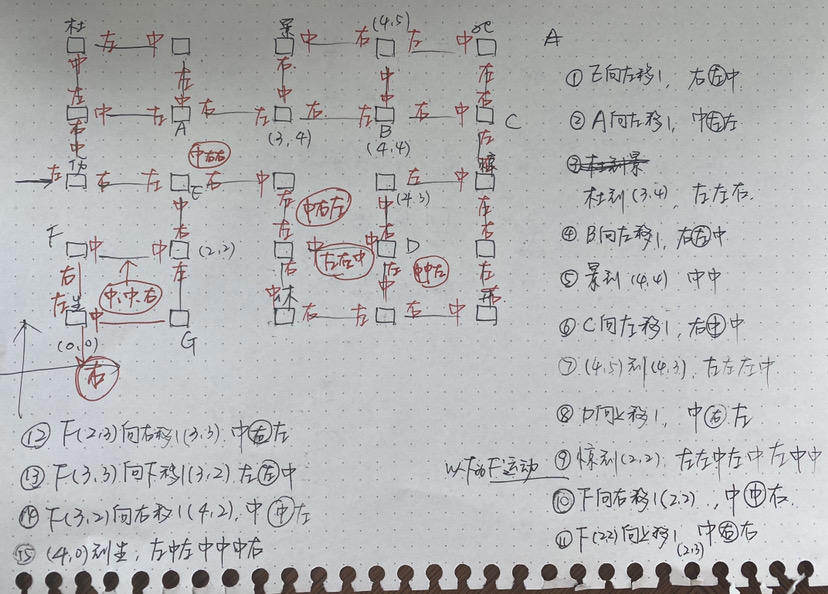 杜 景 (4,5) 死
左 中 中 右 左 中
中 左 右 中 左
左 中 中 中 右 左
中 左 右 左 右 左 右 中
A (3,4) B C
右 左 (4,4) 左
中 中右右 惊
左 右 左 右 中 左 中
E 中右左 (4,3)
中 右 左 中 左
F 右 左 右 右
中 中 (2,2) 中 中 D
右 左 右 左左中 左 中中左 左
左 中,中,右 中 右
生 中 休 右 左 右 中 开
(0,0) G
右
A
① E向左移1, 右左中
② A向左移1, 中左左
③ 杜到景
杜到(3,4), 左左右.
④ B向左移1, 右左中
⑤ 景到(4,4) 中中
⑥ C向左移1, 右中中
⑦ (4,5)到(4,3), 左左左中
⑧ D向上移1, 中右左
⑨ 惊到(2,2), 左左中左中左中中
以下为F运动
⑩ F向右移1(2,2), 中中右
⑪ F(2,2)向上移1, 中右右
(2,3)
⑫ F(2,3)向右移1(3,3). 中右左
⑬ F(3,3)向下移1(3,2). 左左中
⑭ F(3,2)向右移1(4,2). 中中左
⑮ (4,0)到生, 左中左中中中右